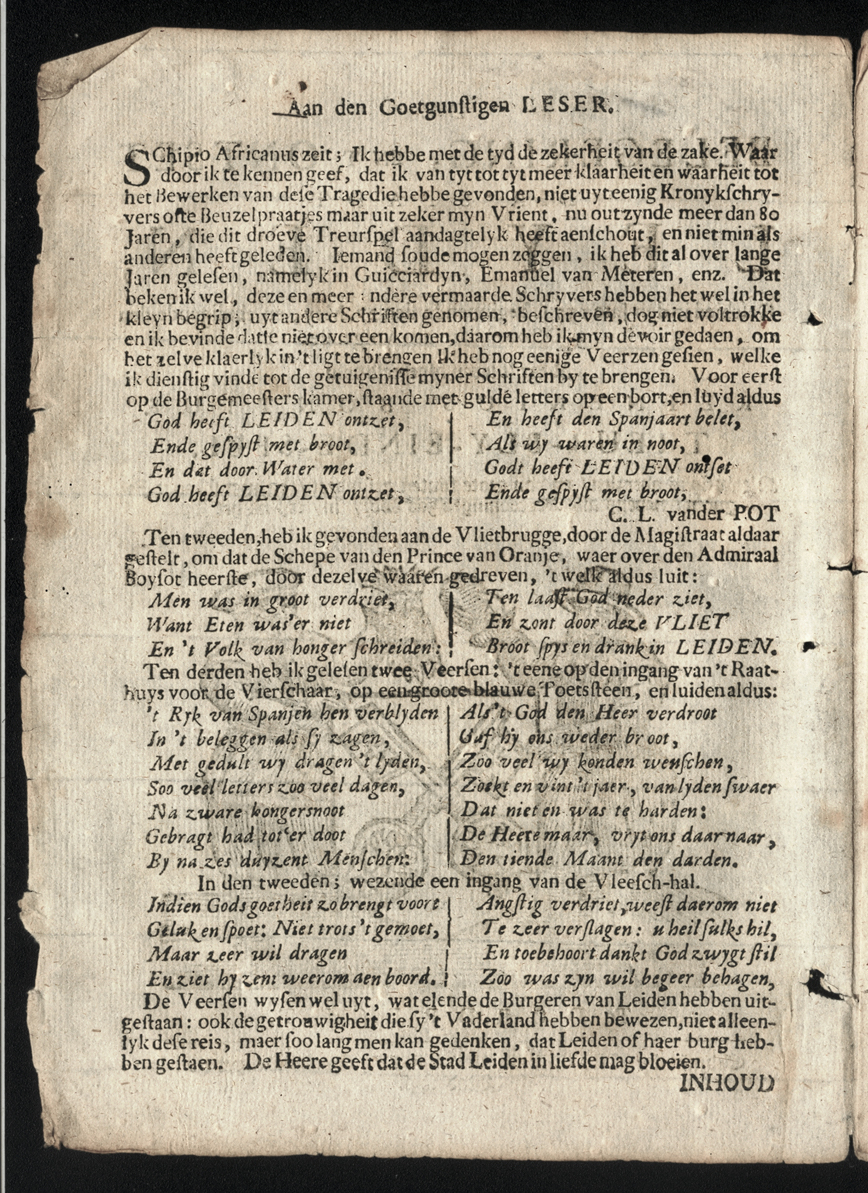 Aan den Goetgunſtigen LESER.
SChipio Africanus zeit; Ik hebbe met de tyd de zekerheit van de zake. Waar
door ik te kennen geef, dat ik van tyt tot tyt meer klaarheit en waarheit tot
het Bewerken van deſe Tragedie hebbe gevonden, niet uyt eenig Kronykſchry-
vers ofte Beuzelpraatjes maar uit zeker myn Vrient, nu out zynde meer dan 80
Jaren, die dit droeve Treurſpel aandagtelyk heeft aenſchout, en niet min als
anderen heeft geleden. Iemand ſoude mogen zeggen, ik heb dit al over lange
Jaren geleſen, namelyk in Guicciardyn, Emanuel van Meteren, enz. Dat
beken ik wel, deze en meer ndere vermaarde Schryvers hebben het wel in het
kleyn begrip; uyt andere Schriften genomen, beſchreven, dog niet voltrokke
en ik bevinde datſe niet over een komen, daarom heb ik myn devoir gedaen, om
het zelve klaerlyk in 't ligt te brengen Ik heb nog eenige Veerzen geſien, welke
ik dienſtig vinde tot de getuigeniſſe myner Schriften by te brengen. Voor eerſt
op de Burgemeeſters kamer, ſtaande met guldē letters op een bort, en luyd aldus
God heeft LEIDEN ontzet,
Ende geſpyſt met broot,
En dat door Water met.
God heeft LEIDEN ontzet,
En heeft den Spanjaart belet,
Als wy waren in noot,
Godt heeft LEIDEN ontſet
Ende geſpyſt met broot,
C. L. vander POT
Ten tweeden, heb ik gevonden aan de Vlietbrugge, door de Magiſtraat aldaar
geſtelt, om dat de Schepe van den Prince van Oranje, waer over den Admiraal
Boyſot heerſte, door dezelve waaren gedreven, 't welk aldus luit:
Men was in groot verdriet,
Want Eten was'er niet
En 't Volk van honger ſchreiden:
Ten laaſt God neder ziet,
En zont door deze VLIET
Broot ſpys en drank in LEIDEN.
Ten derden heb ik geleſen twee Veerſen: 't eene op den ingang van 't Raat-
huys voor de Vierſchaar, op een groote blauwe Toetsſteen, en luiden aldus:
't Ryk van Spanjen hen verblyden
In 't beleggen als ſy zagen,
Met gedult wy dragen 't lyden,
Soo veel letters zoo veel dagen,
Na zware hongersnoot
Gebragt had tot'er doot
By na zes duyzent Menſchen:
Als 't God den Heer verdroot
Gaf hy ons weder broot,
Zoo veel wy konden wenſchen,
Zoekt en vint 't jaer, van lyden ſwaer
Dat niet en was te harden:
De Heere maar, vryt ons daar naar,
Den tiende Maant den darden.
In den tweeden; wezende een ingang van de Vleeſch-hal.
Indien Gods goetheit zo brengt voort
Geluk en ſpoet: Niet trots 't gemoet,
Maar zeer wil dragen
En ziet hy zent weerom aen boord.
Angſtig verdriet, weeſt daerom niet
Te zeer verſlagen: u heil ſulks hil,
En toebehoort dankt God zwygt ſtil
Zoo was zyn wil begeer behagen,
De Veerſen wyſen wel uyt, wat elende de Burgeren van Leiden hebben uit-
geſtaan: ook de getrouwigheit die ſy 't Vaderland hebben bewezen, niet alleen-
lyk deſe reis, maer ſoo lang men kan gedenken, dat Leiden of haer burg heb-
ben geſtaen. De Heere geeft dat de Stad Leiden in liefde mag bloeien.
INHOUD